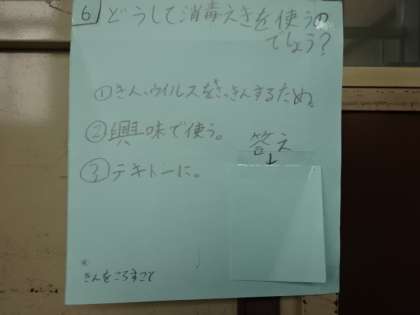 6 どうして消毒えきを使うの
でしょう?
①きん、ウイルスをさっきんするため。
②興味で使う。
答え
↓
③テキトーに。
きんをころすこと